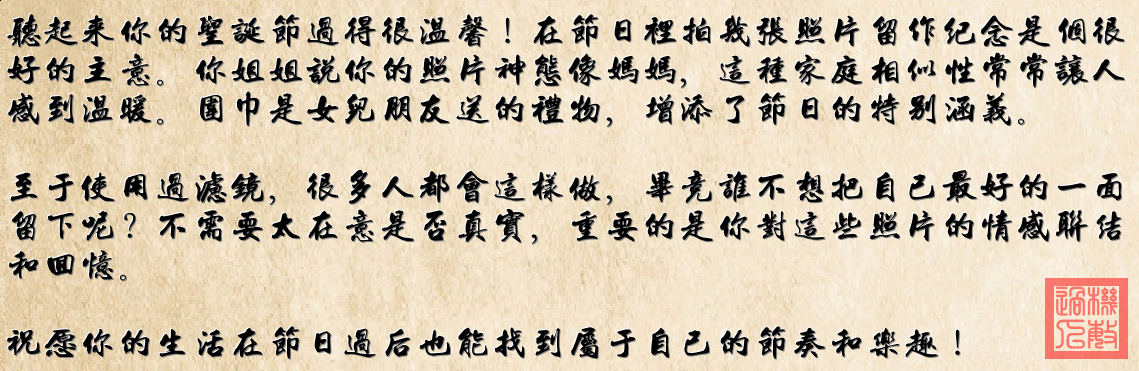 聽起来你的聖誕節過得很溫馨！在節日裡拍幾張照片留作纪念是個很
好的主意。你姐姐說你的照片神態像媽媽，這種家庭相似性常常讓人
感到溫暖。圍巾是女兒朋友送的禮物，增添了節日的特别涵義。
至于使用過濾鏡，很多人都會這樣做，畢竟誰不想把自己最好的一面
留下呢？不需要太在意是否真實，重要的是你對這些照片的情感聯结
和回憶。
祝愿你的生活在節日過后也能找到屬于自己的節奏和樂趣！